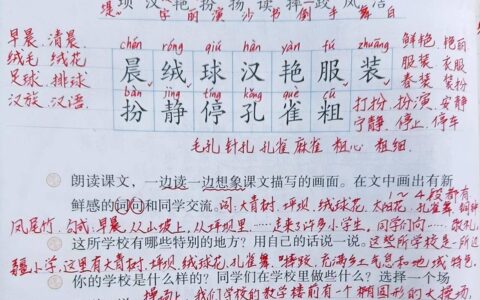 坝 汉 艳 扮 扬 读 摔 跤 凤 洁
堤 字 丽 演 沙 书 倒 手 舞 白
chén róng qiú hàn yàn fú zhuāng
早晨、清晨、 晨 绒 球 汉 艳 服 装 鲜艳、艳丽
绒毛、绒花 服装、衣服
足球、排球 春装、装扮
bàn jìng tíng kǒng què cū
汉族、汉语、 扮 静 停 孔 雀 粗 打扮、扮演、安静
宁静、停止、停车
毛孔 针孔 孔雀 麻雀 粗心 粗细
朗读课文,一边读一边想象课文描写的画面。在文中画出有新
1~4段都有
鲜感的词句和同学交流。词:大青树、坪坝、绒球花、太阳花、孔雀舞、铜钟
凤尾竹、句式:早晨,从山坡上,从坪坝里……走来了许多小学生,同学们向……敬礼,
这所学校有哪些特别的地方?用自己的话说一说。这些所学校是一所边
疆小学,这里有大青树、坪坝、绒球花、孔雀舞、充满了生气息和地域特色,
你的学校是什么样的?同学们在学校里做些什么?选择一个场
操场上:我们学校的教学楼前有一个椭圆形的大操场,